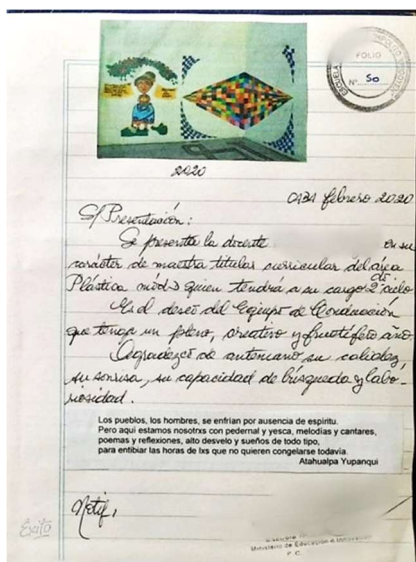 FOLIO
Nº 50
ESCUELA
2020
CABA febrero 2020
S/Presentación:
Se presenta la docente en su
carácter de maestra titular curricular del área de
Plástica mód-3 quien tendrá a su cargo 2º ciclo
Es el deseo del Equipo de Conducción
que tenga un pleno, creativo y fructífero año.
Agradezco de antemano su calidez,
su sonrisa, su capacidad de búsqueda y labo-
riosidad.
Los pueblos, los hombres, se enfrían por ausencia de espíritu.
Pero aquí estamos nosotrxs con pedernal y yesca, melodías y cantares,
poemas y reflexiones, alto desvelo y sueños de todo tipo,
para entibiar las horas de lxs que no quieren congelarse todavía.
Atahualpa Yupanqui
Notif,
Éxito
Ministerio de Educación e